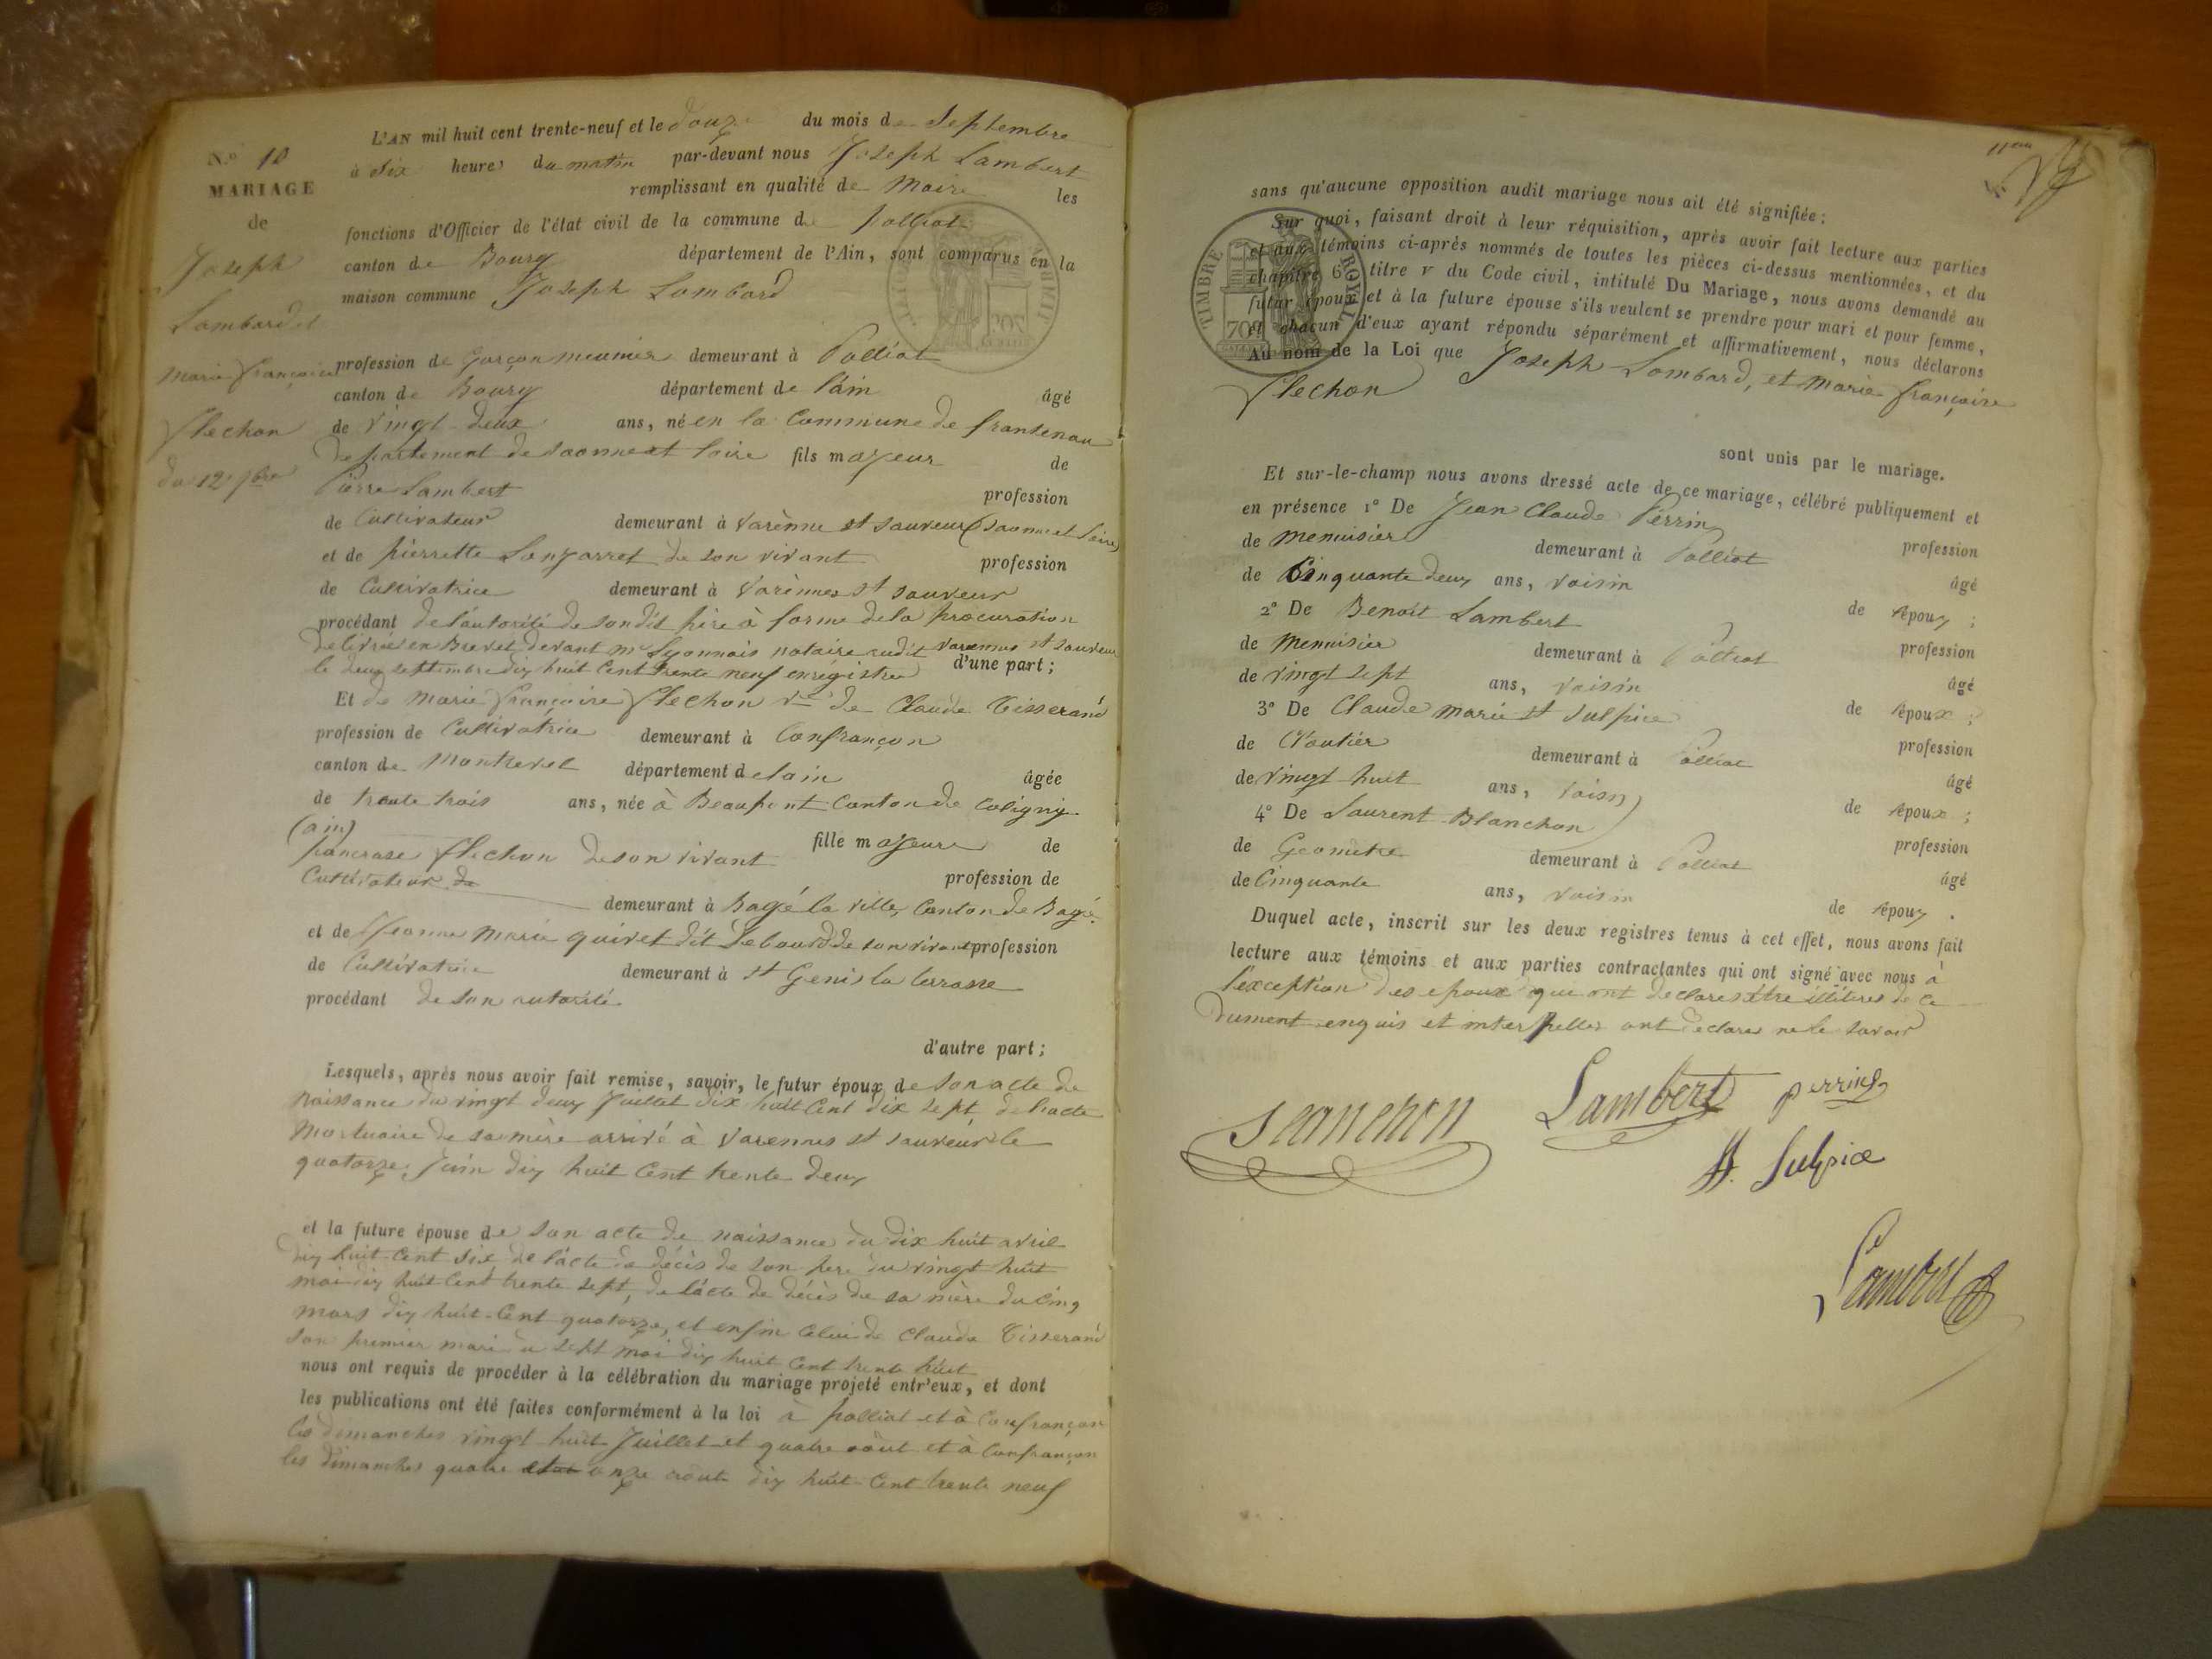 N.º 10
MARIAGE
de
Joseph
Lombard et
Marie françoise
flechon
du 12 7bre
L'AN mil huit cent trente-neuf et le douze du mois de Septembre
à dix heures du matin par-devant nous Joseph Lambert
remplissant en qualité de Maire les
fonctions d'Officier de l'état civil de la commune de polliat
canton de Bourg département de l'Ain, sont comparus en la
maison commune Joseph Lombard
profession de Garçon meunier demeurant à Polliat
canton de Bourg département de l'ain âgé
de vingt-deux ans, né en la Commune de frontenau
département de saone et loire fils majeur de
Pierre Lambert profession
de Cultivateur demeurant à Varènne st sauveur (saone et loire)
et de pierrette de son vivant profession
de Cultivatrice demeurant à Varènnes st sauveur
procédant de l'autorité de son dit père à forme de la procuration
delivrée en Brevet devant me Lyonnais notaire audit varennes st sauveur
le deux septembre dix huit Cent trente neuf enregistrée d'une part ;
Et de Marie françoise flechon ve de Claude Tisserand
profession de Cultivatrice demeurant à Confrançon
canton de Montrevel département de lain âgée
de trente trois ans, née à Beaupont Canton de Coligny
(ain) fille majeure de
pancrase flechon de son vivant profession de
Cultivateur de
demeurant à Bagé la ville, Canton de Bagé
et de Jeanne Marie quivet dit de son vivant profession
de Cultivatrice demeurant à st Genis la terrasse
procédant de son autorité
d'autre part ;
Lesquels, après nous avoir fait remise, savoir, le futur époux de son acte de
naissance du vingt deux Juillet dix huit Cent dix sept de l'acte
Mortuaire de sa mère arrivé à Varennes st sauveur le
quatorze Juin dix huit Cent trente deux
et la future épouse de son acte de naissance du dix huit avril
dix huit Cent six, de l'acte de décès de son père du vingt huit
mai dix huit Cent trente sept, de l'acte de décès de sa mère du Cinq
mars dix huit-Cent quatorze, et enfin Celui de Claude Tisserand
son premier mari du sept mai dix huit Cent trente huit
nous ont requis de procéder à la célébration du mariage projeté entr'eux, et dont
les publications ont été faites conformément à la loi à polliat et à Confrançon
les dimanches vingt huit Juillet et quatre août et à Confrançon
les dimanches quatre et onze août dix huit-Cent trente neuf
TIMBRE ROYAL
70
sans qu'aucune opposition audit mariage nous ait été signifiée ;
Sur quoi, faisant droit à leur réquisition, après avoir fait lecture aux parties
et aux témoins ci-après nommés de toutes les pièces ci-dessus mentionnées, et du
chapitre 6, titre v du Code civil, intitulé Du Mariage, nous avons demandé au
futur époux et à la future épouse s'ils veulent se prendre pour mari et pour femme,
et chacun d'eux ayant répondu séparément et affirmativement, nous déclarons
Au nom de la Loi que Joseph Lombard, et Marie françoise
flechon
sont unis par le mariage.
Et sur-le-champ nous avons dressé acte de ce mariage, célébré publiquement et
en présence 1º De Jean Claude Perrin profession
de Menuisier demeurant à Polliat âgé
de Cinquante deux ans, voisin de s époux ;
2º De Benoit Lambert profession
de Menuisier demeurant à Polliat âgé
de vingt sept ans, voisin de s époux ;
3º De Claude marie st Sulpice profession
de Cloutier demeurant à Polliat âgé
de vingt huit ans, voisin de s époux ;
4º De Laurent Blanchon profession
de Geometre demeurant à Polliat âgé
de Cinquante ans, voisin de s époux .
Duquel acte, inscrit sur les deux registres tenus à cet effet, nous avons fait
lecture aux témoins et aux parties contractantes qui ont signé avec nous à
l'exception des epoux qui ont declarés être illiterés de ce
dument enquis et interpellés ont declarés ne le savoir
Blanchon Lambert perrin
St. Sulpice
Lambert